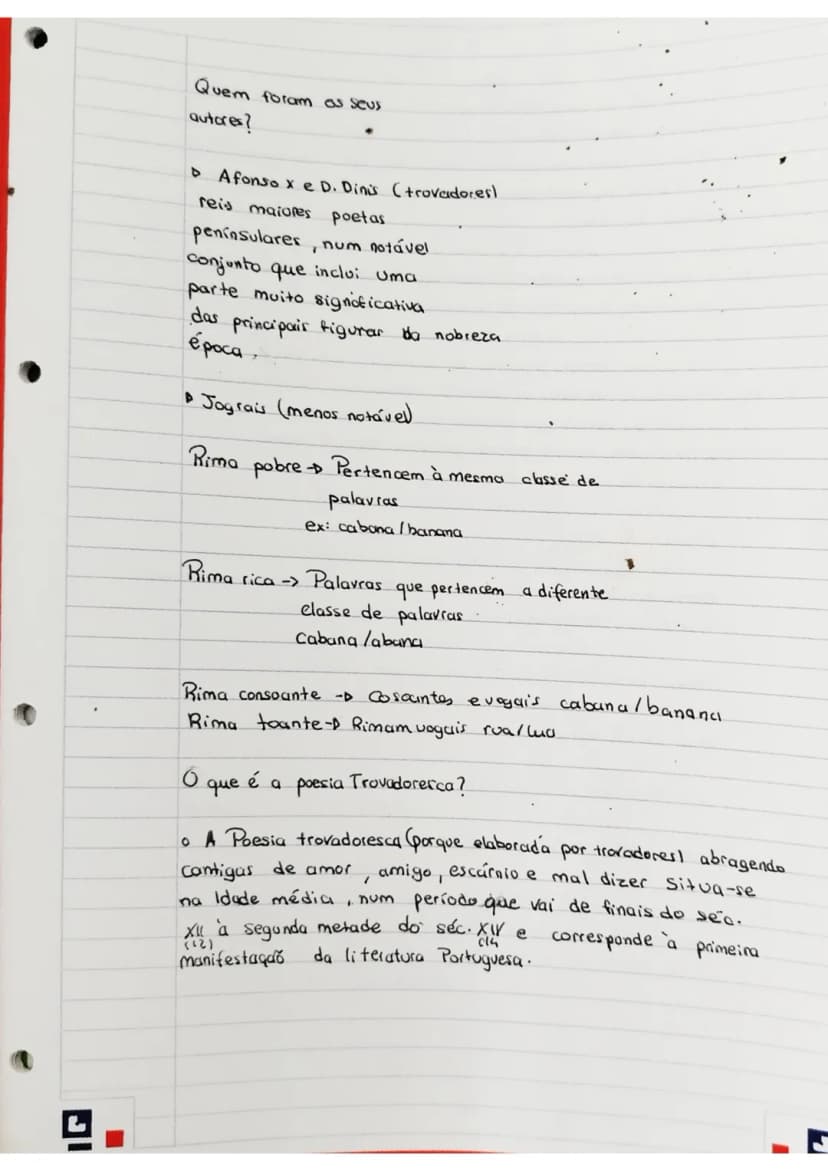 Quem foram os seus
autores?
▷ Afonso x e D. Dinis (trovadores)
reis maiores poetas
peninsulares, num notável
conjunto que inclui uma
parte muito significativa
das principais figuras da nobreza
época.
▷ Jograis (menos notável)
Rima pobre → Pertencem à mesma classe de
palavras
ex: cabana / banana
Rima rica → Palavras que pertencem a diferente
classe de palavras
Cabana / abana
Rima consoante → Cosoantes e vogais cabana / banana
Rima toante → Rimam vogais rua / lua
O que é a poesia Trovadoresca?
o A Poesia trovadoresca (porque elaborada por trovadores) abragendo
cantigas de amor, amigo, escárnio e mal dizer situa-se
na Idade média, num período que vai de finais do séc.
XII à segunda metade do séc. XIV e corresponde à primeira
(12) (14
manifestação da literatura Portuguesa.